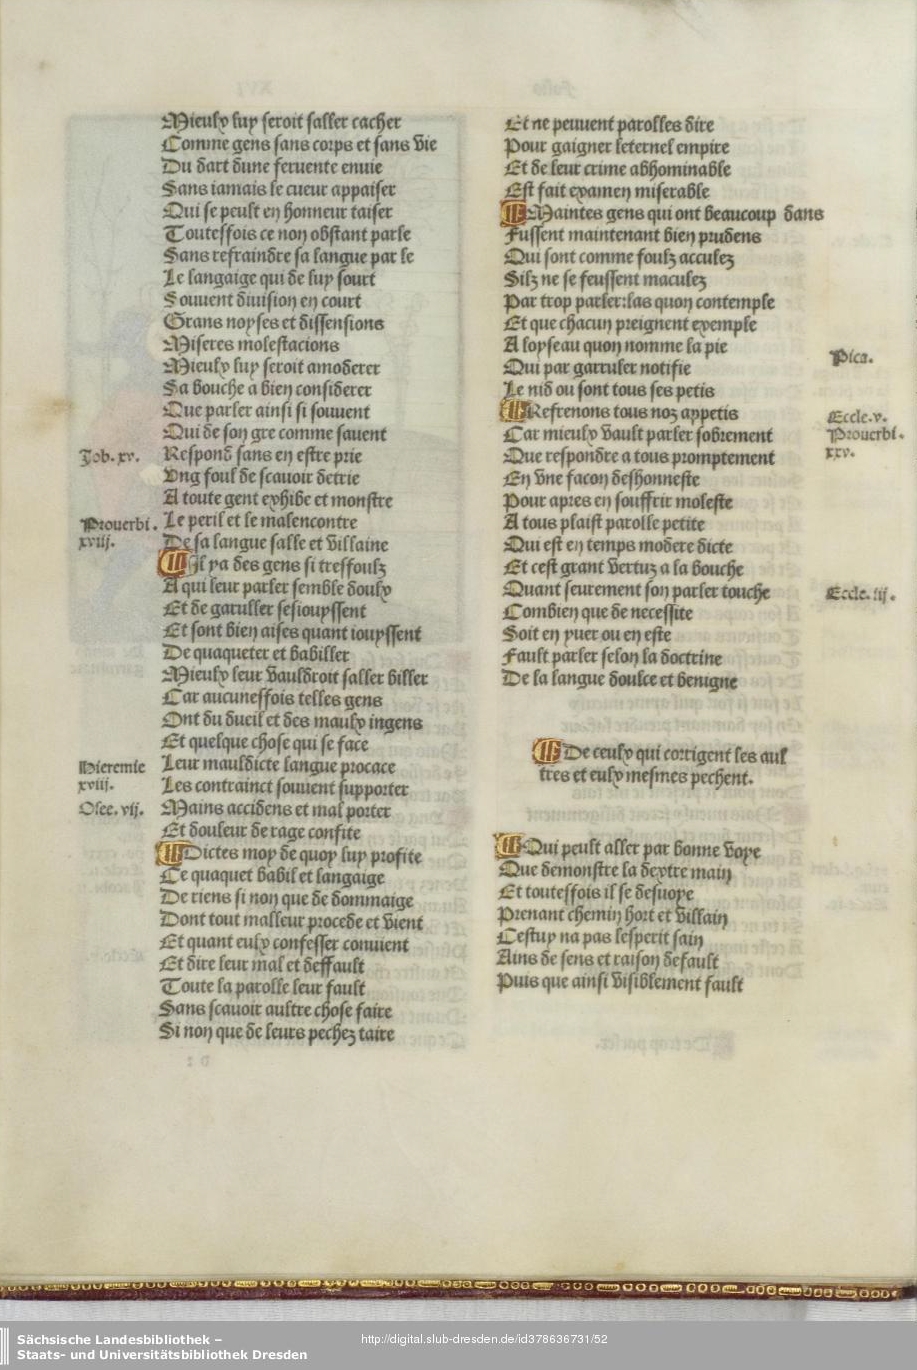 Mieulx luy seroit saller cacher
Comme gens sans corps et sans vie
Du dart dune feruente enuie
Sans iamais le cueur appaiser
Qui se peult en honneur taiser
Touteffois ce non obstant parle
Sans refraindre sa langue par le
Le langaige qui de luy sourt
Souuent diuision en court
Grans noyses et dissensions
Miseres molestacions
Mieulx luy seroit amoderer
Sa bouche a bien considerer
Que parler ainsi si souuent
Qui de son gre comme sauent
Job. xv. Respond sans en estre prie
Ung foul de scauoir detrie
A toute gent exhibe et monstre
Prouerbi. Le peril et le malencontre
xviij. De sa langue salle et villaine
Il ya des gens si tresfoulz
A qui leur parler semble doulx
Et de garuller sesiouyssent
Et sont bien aises quant iouyssent
De quaqueter et babiller
Mieulx leur vauldroit saller biller
Car aucuneffois telles gens
Ont du dueil et des maulx ingens
Et quelque chose qui se face
Hieremie Leur mauldicte langue procace
xviij. Les contrainct souuent supporter
Osee. vij. Mains accidens et mal porter
Et douleur de rage confite
Dictes moy de quoy luy profite
Ce quaquet babil et langaige
De riens si non que de dommaige
Dont tout malleur procede et vient
Et quant eulx confesser conuient
Et dire leur mal et deffault
Toute la parolle leur fault
Sans scauoir aultre chose faire
Si non que de leurs pechez taire
Et ne peuuent parolles dire
Pour gaigner leternel empire
Et de leur crime abhominable
Est fait examen miserable
Maintes gens qui ont beaucoup dans
Fussent maintenant bien prudens
Qui sont comme foulz acculez
Silz ne se feussent maculez
Par trop parler:las quon contemple
Et que chacun preignent exemple
A loyseau quon nomme la pie Pica.
Qui par garruler notifie
Le nid ou sont tous ses petis
Refrenons tous noz appetis Eccle. v.
Car mieulx vault parler sobrement Prouerbi.
Que respondre a tous promptement xxv.
En vne facon deshonneste
Pour apres en souffrir moleste
A tous plaist parolle petite
Qui est en temps modere dicte
Et cest grant vertuz a la bouche
Quant seurement son parler touche Eccle. iij.
Combien que de necessite
Soit en yuer ou en este
Fault parler selon la doctrine
De la langue doulce et benigne
De ceulx qui corrigent les aul
tres et eulx mesmes pechent.
Qui peult aller par bonne voye
Que demonstre la dextre main
Et touteffois il se desuoye
Prenant chemin hort et villain
Cestuy na pas lesperit sain
Ains de sens et raison default
Puis que ainsi visiblement fault
Sächsische Landesbibliothek –
Staats- und Universitätsbibliothek Dresden
http://digital.slub-dresden.de/id378636731/52